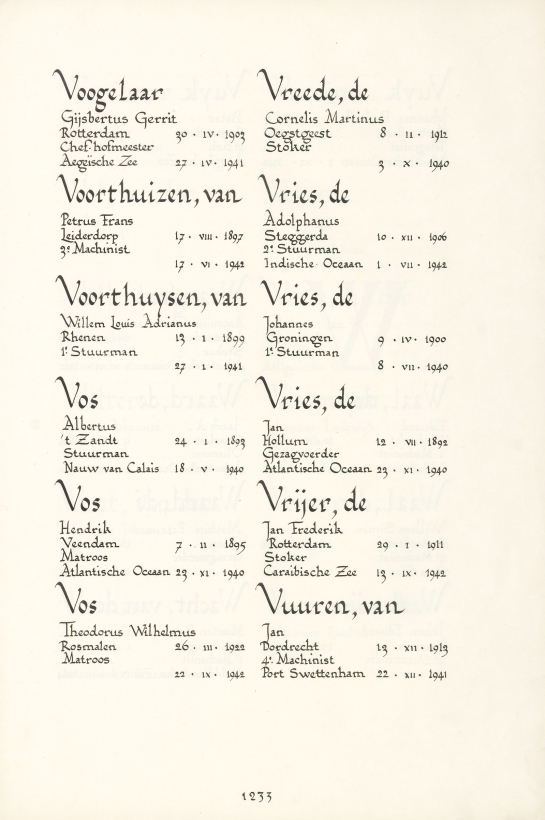 Voogelaar
Gijsbertus Gerrit
Rotterdam 30 · IV · 1903
Chef-hofmeester
Aegeïsche Zee 27 · IV · 1941
Voorthuizen, van
Petrus Frans
Leiderdorp 17 · VIII · 1897
3e Machinist
17 · VI · 1942
Voorthuysen, van
Willem Louis Adrianus
Rhenen 13 · I · 1899
1e Stuurman
27 · I · 1941
Vos
Albertus
't Zandt 24 · I · 1893
Stuurman
Nauw van Calais 18 · V · 1940
Vos
Hendrik
Veendam 7 · II · 1895
Matroos
Atlantische Oceaan 23 · XI · 1940
Vos
Theodorus Wilhelmus
Rosmalen 26 · III · 1922
Matroos
22 · IX · 1942
Vreede, de
Cornelis Martinus
Oegstgeest 8 · II · 1912
Stoker
3 · X · 1940
Vries, de
Adolphanus
Steggerda 10 · XII · 1906
2e Stuurman
Indische Oceaan 1 · VII · 1942
Vries, de
Johannes
Groningen 9 · IV · 1900
1e Stuurman
8 · VII · 1940
Vries, de
Jan
Hollum 12 · VII · 1892
Gezagvoerder
Atlantische Oceaan 23 · XI · 1940
Vrijer, de
Jan Frederik
Rotterdam 29 · I · 1911
Stoker
Caraibische Zee 13 · IX · 1942
Vuuren, van
Jan
Dordrecht 13 · XII · 1913
4e Machinist
Port Swettenham 22 · XII · 1941
1233